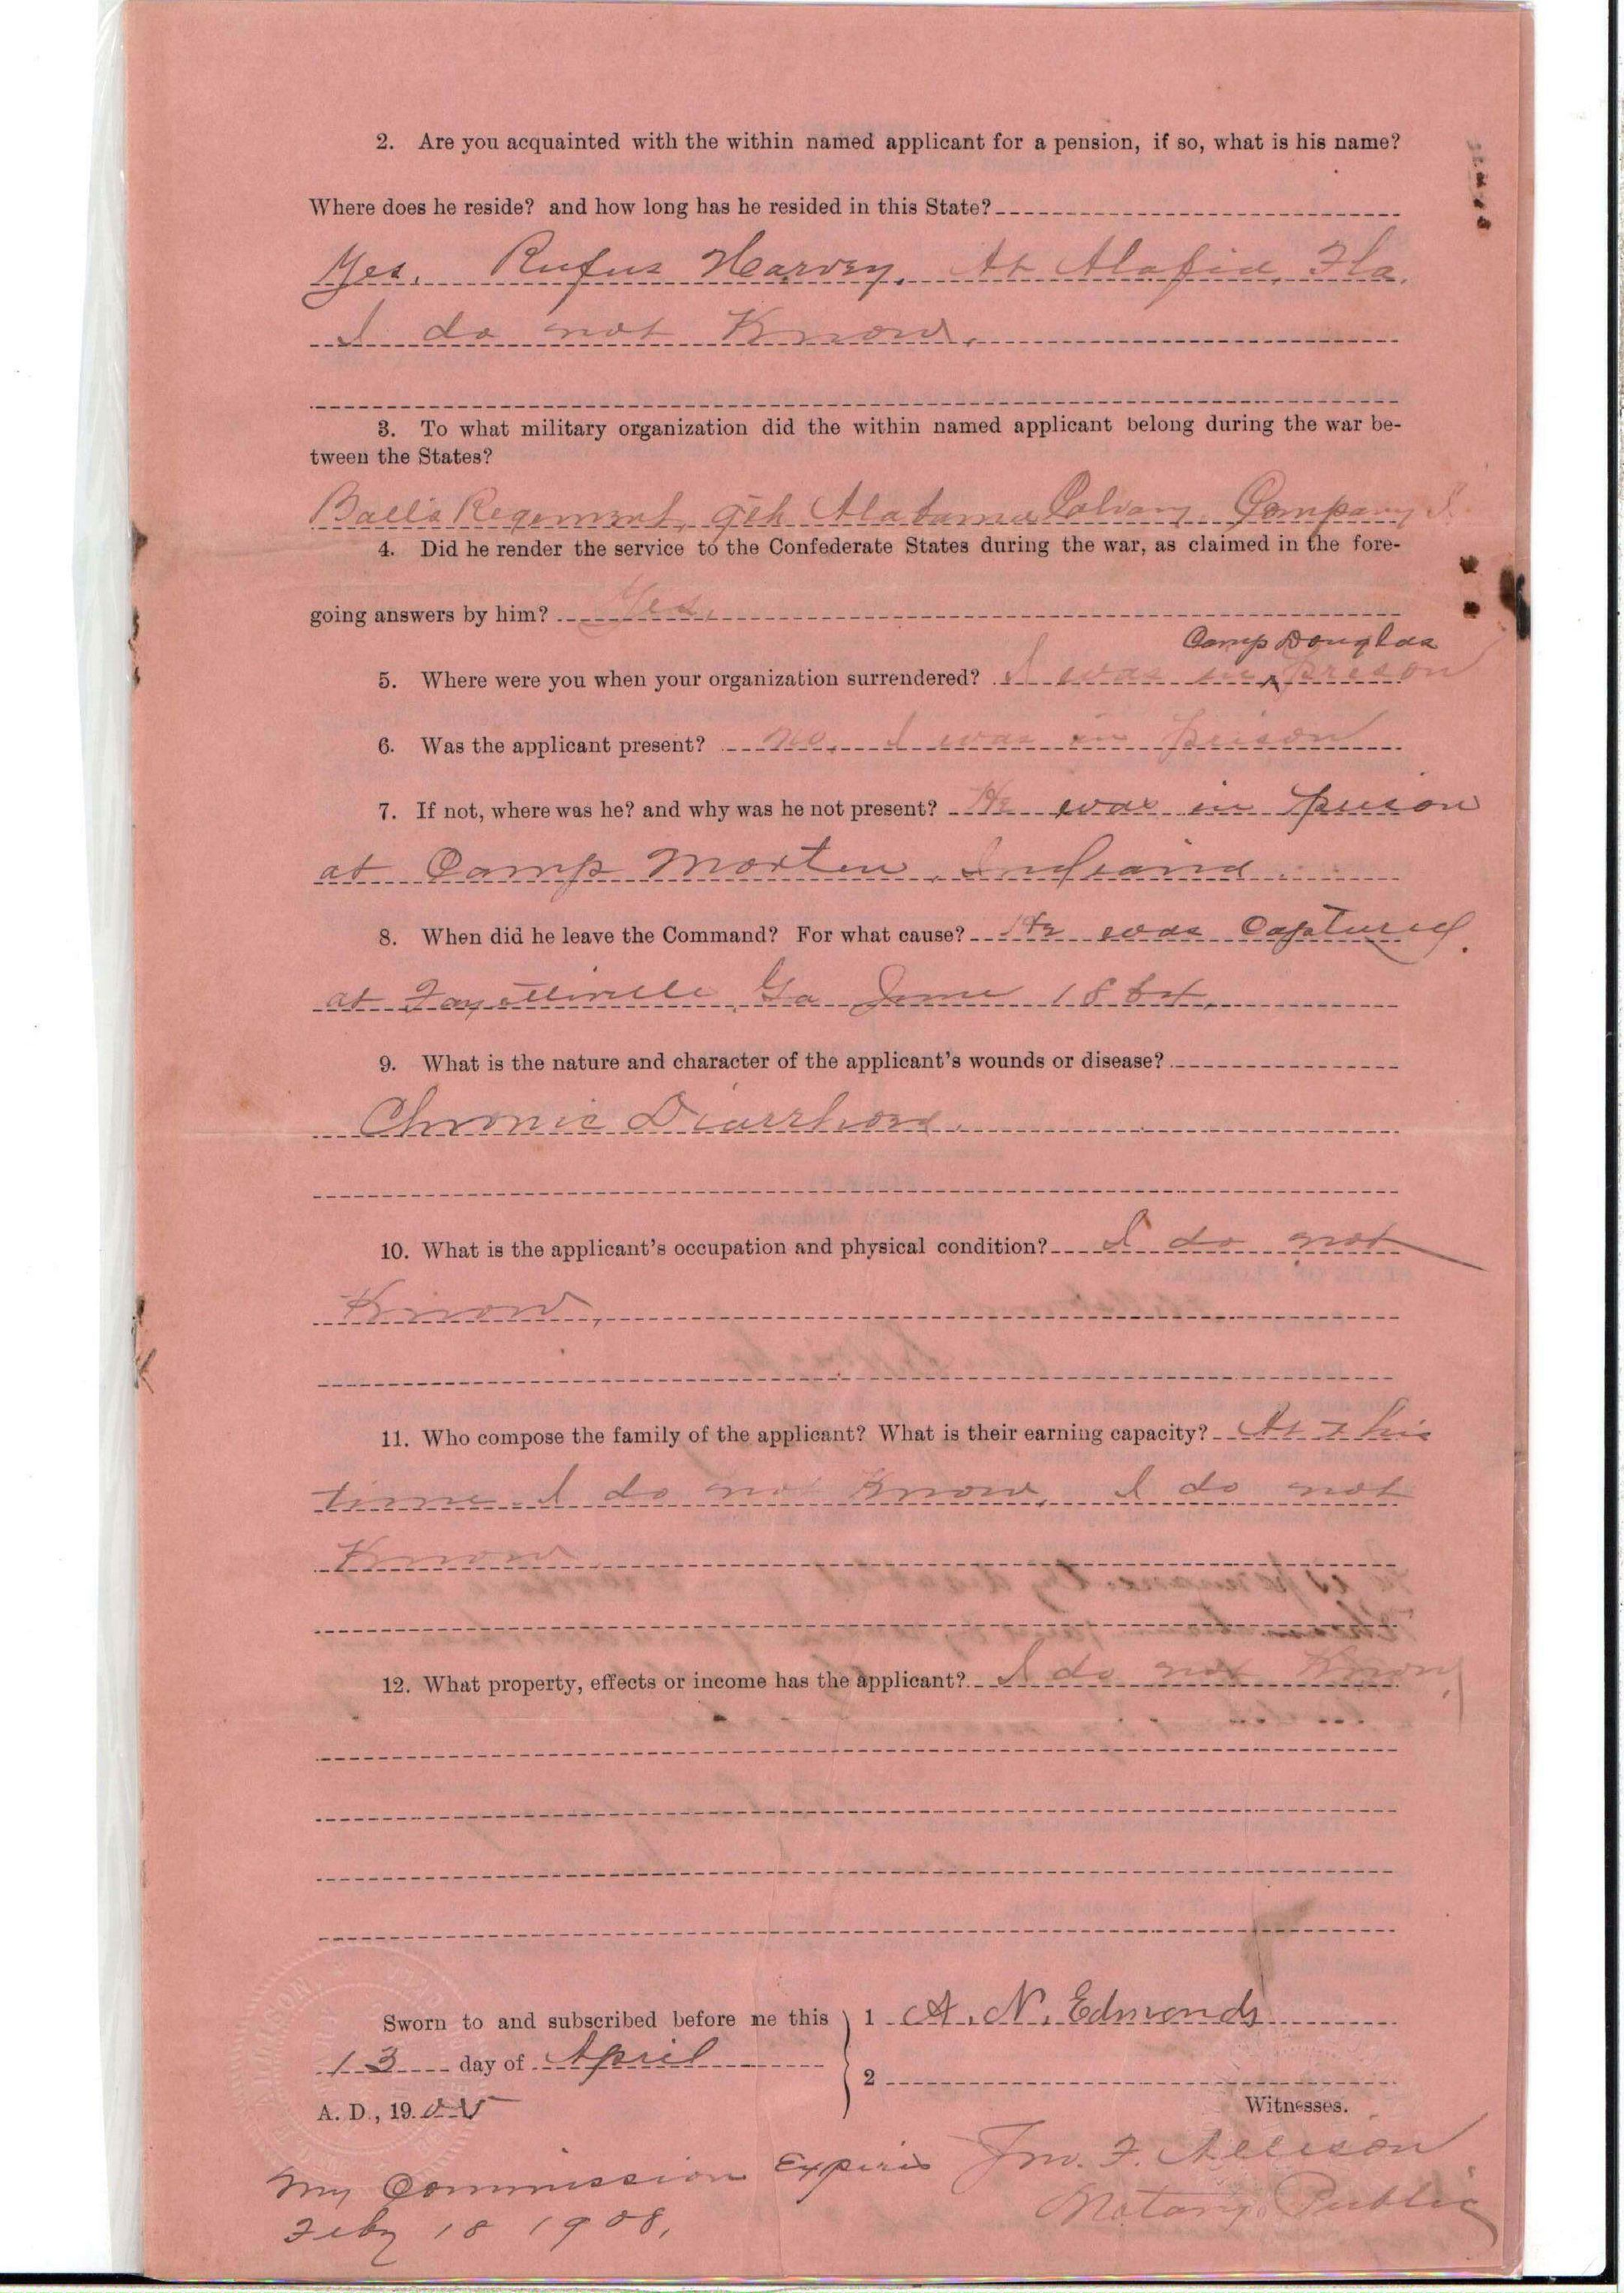 2. Are you acquainted with the within named applicant for a pension, if so, what is his name?
Where does he reside? and how long has he resided in this State?
Yes. Rufus Harvey. At Alafia, Fla.
I do not Know.
3. To what military organization did the within named applicant belong during the war be-
tween the States?
Regement, 9th Alabama Calvary Company
4. Did he render the service to the Confederate States during the war, as claimed in the fore-
going answers by him? Yes.
Camp Douglas
5. Where were you when your organization surrendered? I was in ^ Prison
6. Was the applicant present? no, I was in prison
7. If not, where was he? and why was he not present? He was in prison
at Camp Morton, Indiana
8. When did he leave the Command? For what cause? He was Captured.
at Fayetteville, Ga June 1864.
9. What is the nature and character of the applicant's wounds or disease?
Chronic
10. What is the applicant's occupation and physical condition? I do not
Know,
11. Who compose the family of the applicant? What is their earning capacity? At this
time I do not know, I do not
Know
12. What property, effects or income has the applicant? I do not Know,
Sworn to and subscribed before me this 1 A. N. Edmonds
13 day of April
2
A. D., 19 05
Witnesses.
My Commission Expires Jno. F. Allison
Feby 18 1908, Notary Public